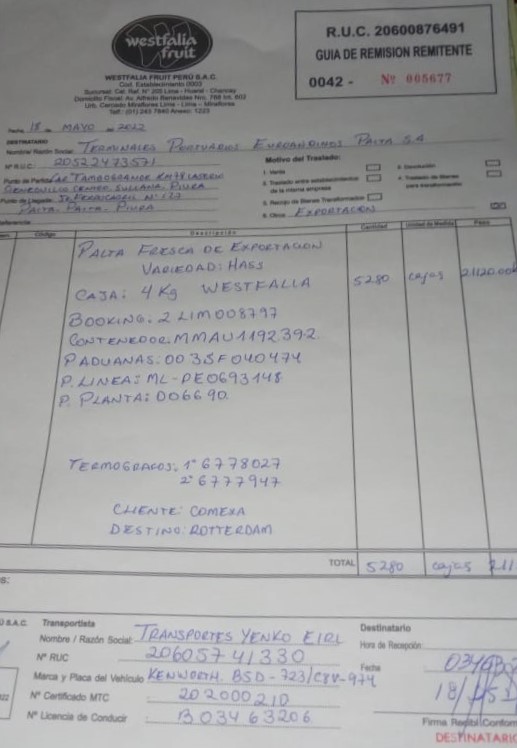 westfalia
fruit
WESTFALIA FRUIT PERÚ S.A.C.
Cod. Establecimiento 0003
R.U.C. 20600876491
GUIA DE REMISION REMITENTE
0042 - Nº 005677
Fecha, 18 de MAYO de 2022
DESTINATARIO
Nombre/ Razón Social: TERMINALES PORTUARIOS EUROANDINOS PAITA S.A
Nº R.U.C: 20522473571
Motivo del Traslado:
1. Venta
2. Traslado entre establecimientos de la misma empresa
3. Recojo de Bienes Transformados
4. Devolución
5. Traslado de Bienes para transformación
6. Otros EXPORTACION
Punto de Partida: TAMBOGRANDE KM
CIENEGUILLO CENTRO SULLANA, PIURA
Punto de Llegada:
PAITA - PAITA - PIURA
Referencia:
Código Descripción Cantidad Unidad de Medida Peso
PALTA FRESCA DE EXPORTACION
VARIEDAD: HASS
CAJA: 4 Kg WESTFALIA 5280 cajas
BOOKING: 2 LIM008797
CONTENEDOR: MMAU1192392
P. ADUANAS: 0035F040474
P. LINEA: ML-PE0693148
P. PLANTA: 006690
TERMOGRAFOS: 1° 6778027
2° 6777947
CLIENTE: COMEXA
DESTINO: ROTTERDAM
TOTAL 5280 cajas
Transportista
Nombre / Razón Social: TRANSPORTES YENKO EIRL
Nº RUC 20605741330
Marca y Placa del Vehículo KENWORTH. BSD-723/C8V-974
Nº Certificado MTC 202000210
Nº Licencia de Conducir B03463206
Destinatario
Hora de Recepción:
Fecha
DESTINATARIO